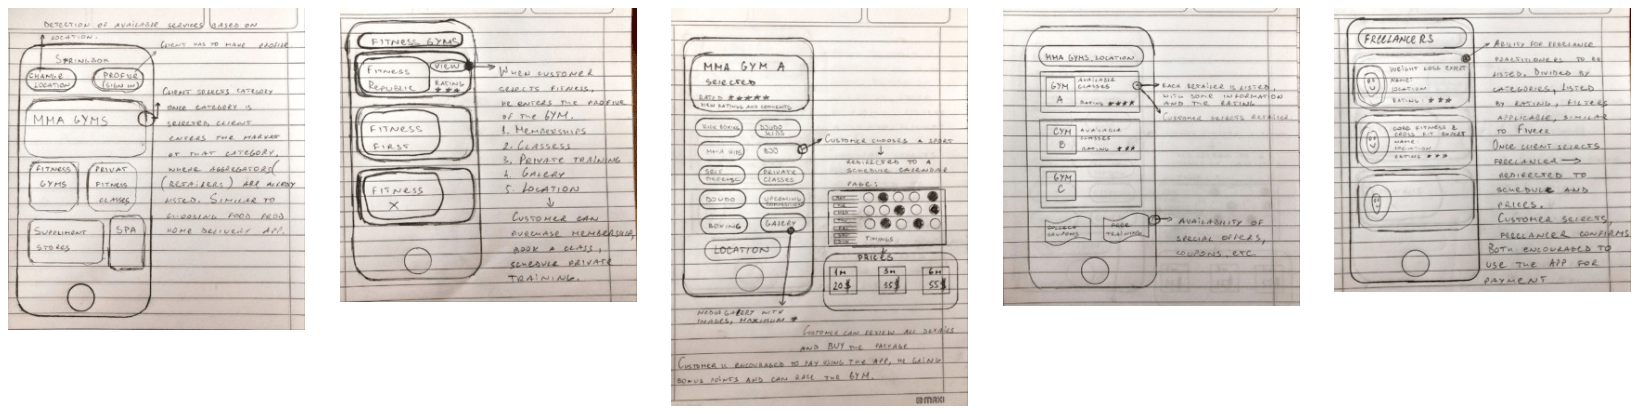 DETECTION OF AVAILABLE SERVICES BASED ON
LOCATION.
CLIENT HAS TO MAKE PROFILE
SPRINGBOK
CHANGE
LOCATION
PROFILE
SIGN IN
MMA GYMS
FITNESS
GYMS
PRIVAT
FITNESS
CLASSES
SUPPLIMENT
STORES
SPA
CLIENT SELECTS CATEGORY
ONCE CATEGORY IS
SELECTED CLIENT
ENTERS THE MARKET
OF THAT CATEGORY,
WHERE AGGREGATORS
(RETAILERS) ARE ALREADY
LISTED. SIMILAR TO
CHOOSING FOOD FROM
HOME DELIVERY APP.
FITNESS GYMS
FITNESS
REPUBLIC
VIEW
RATING
FITNESS
FIRST
FITNESS
X
WHEN CUSTOMER
SELECTS FITNESS,
HE ENTERS THE PROFILE
OF THE GYM.
1. MEMBERSHIPS
2. CLASSESS
3. PRIVATE TRAINING
4. GALERY
5. LOCATION
CUSTOMER CAN
PURCHASE MEMBERSHIP,
BOOK A CLASS,
SCHEDULE PRIVATE
TRAINING.
MMA GYM A
SELECTED
RATED ★★★★★
VIEW RATINGS AND COMMENTS
KICK BOXING
DJUDO
KIDS
MMA KIDS
BJJ
SELF
DEFENSE
PRIVATE
CLASSES
DJUDO
UPCOMING
BOXING
GALERY
LOCATION
CUSTOMER CHOOSES A SPORT
REDIRECTED TO A
SCHEDULE CALENDAR
PAGE:
TIMINGS
PRICES
1M
20$
3M
35$
6M
55$
MEDIA GALERY WITH
IMAGES, MAXIMUM
CUSTOMER CAN REVIEW ALL DETAILS
AND BUY THE PACKAGE
CUSTOMER IS ENCOURAGED TO PAY USING THE APP, HE GAINS
BONUS POINTS AND CAN RATE THE GYM.
MAXI
MMA GYMS LOCATION
GYM
A
AVAILABLE
CLASSES
RATING ★★★★
GYM
B
AVAILABLE
CLASSES
RATING ★★★
GYM
C
COLLECT
COUPONS
FREE
TRAINING
EACH RETAILER IS LISTED,
WITH SOME INFORMATION
AND THE RATING
CUSTOMER SELECTS RETAILER
AVAILABILITY OF
SPECIAL OFFERS,
COUPONS, ETC.
FREELANCERS
WEIGHT LOSS EXPERT
NAME:
LOCATION
RATING: ★★★
CROSS FIT EXPERT
NAME:
LOCATION
RATING ★★★
ABILITY FOR FREELANCE
PRACTITIONERS TO BE
LISTED, DIVIDED BY
CATEGORIES, LISTED
BY RATING, FILTERS
APPLICABLE, SIMILAR
TO FIVERR
ONCE CLIENT SELECTS
FREELANCER →
REDIRECTED TO
SCHEDULE AND
PRICES.
CUSTOMER SELECTS,
FREELANCER CONFIRMS
BOTH ENCOURAGED TO
USE THE APP FOR
PAYMENT